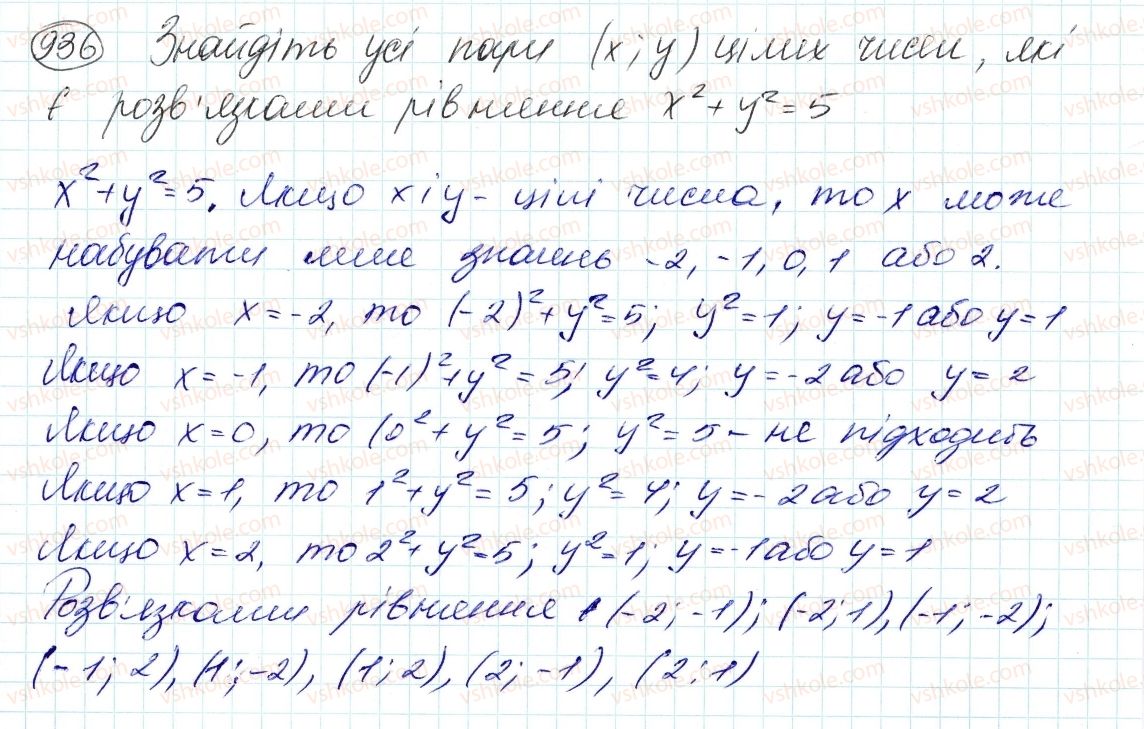 936 Знайдіть усі пари (x; y) цілих чисел, які
є розв'язками рівняння x² + y² = 5
x² + y² = 5. Якщо x і y - цілі числа, то x може
набувати лише значень -2, -1, 0, 1 або 2.
Якщо x = -2, то (-2)² + y² = 5; y² = 1; y = -1 або y = 1
Якщо x = -1, то (-1)² + y² = 5; y² = 4; y = -2 або y = 2
Якщо x = 0, то (0² + y² = 5; y² = 5 - не підходить
Якщо x = 1, то 1² + y² = 5; y² = 4; y = -2 або y = 2
Якщо x = 2, то 2² + y² = 5; y² = 1; y = -1 або y = 1
Розв'язками рівняння є (-2; -1); (-2; 1), (-1; -2);
(-1; 2), (1; -2), (1; 2), (2; -1), (2; 1)